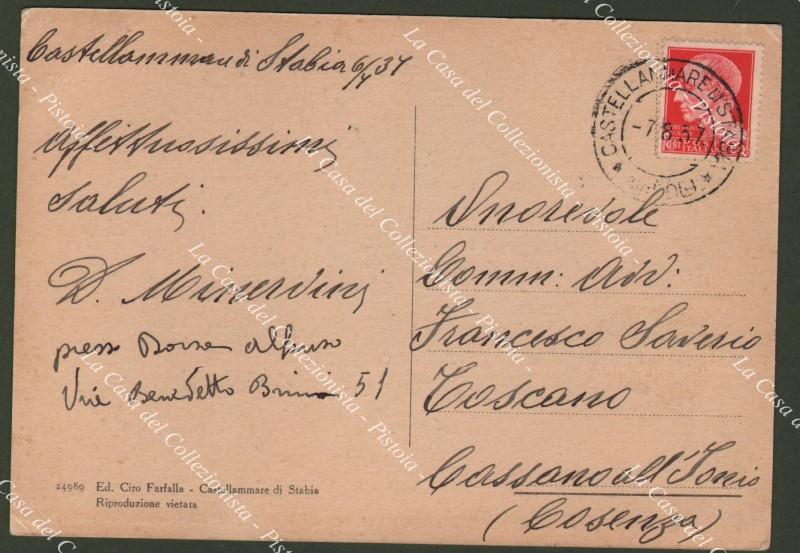 Castellammare di Stabia 6/7 37
Affettuosissimi
Saluti.
D. Minervini
presso Borsa
Via Benedetto 51
24989 Ed. Ciro Farfalla - Castellammare di Stabia
Riproduzione vietata
CASTELLAMMARE DI STABIA
-7.8.37
Onorevole
Comm: Avv:
Francesco Saverio
Toscano
Cassano all'Ionio
(Cosenza)
La Casa del Collezionista - Pistoia -